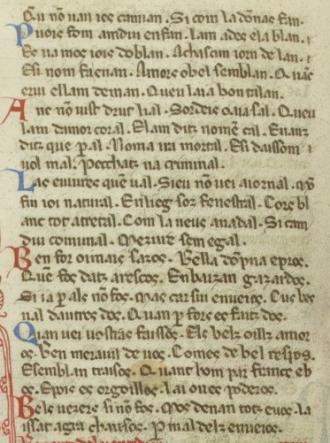 Qu non uan ioc camian. Si com la dōnaç fan.
Puois fom amdui enfan. lam ades ela blan.
Es na mos ioie doblan. Achascun iorn de lan.
Esi nom fa enan. Amors obel semblan. Quāt
erui ellam deman. Queu laia bon talan.
Anc nō uist drut lial. Sordeis oaia sal. Queu
lam damor coral. Elam ditz nomēt cal. Enanz
ditz que p al. Noma ira mortal. Esi daissom
uol mal. Pecchatz na criminal.
Las euiure quē ual. Sieu nō uei aiornal. Mō
fin ioi natural. En lieg soz fenestral. Cors bl
anc tot atretal. Com la neus anadal. Si cam
dui comunal. Mezurés sem egal.
Ben for oimais sazos. Bella dōpna epros.
Quē fos datz arescos. En baizan gazardos.
Si ia p als nō fos. Mas car sui enueios. Cus bes
ual dautres dos. Quan p fors es faitz dos.
Quan uei uostras faissos. Els belz oillz amor
os. Ben merauil de uos. Com es de bel respos.
Esemblan traisos. Quant hom par francs eb
os. Epois es orgoillos. lai on es poderos.
Bels uezers si nō fos. Mos denan totz euos. la
issat agra chansos. P mal delz enueios.